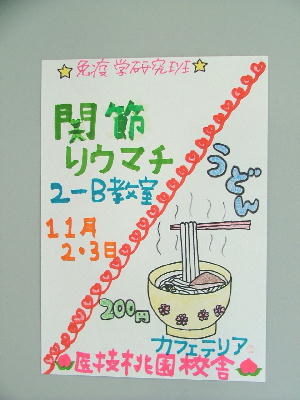 免疫学研究班
関節
リウマチ
2-B教室
11月
2・3日
うどん
200円
カフェテリア
医技桃園校舎